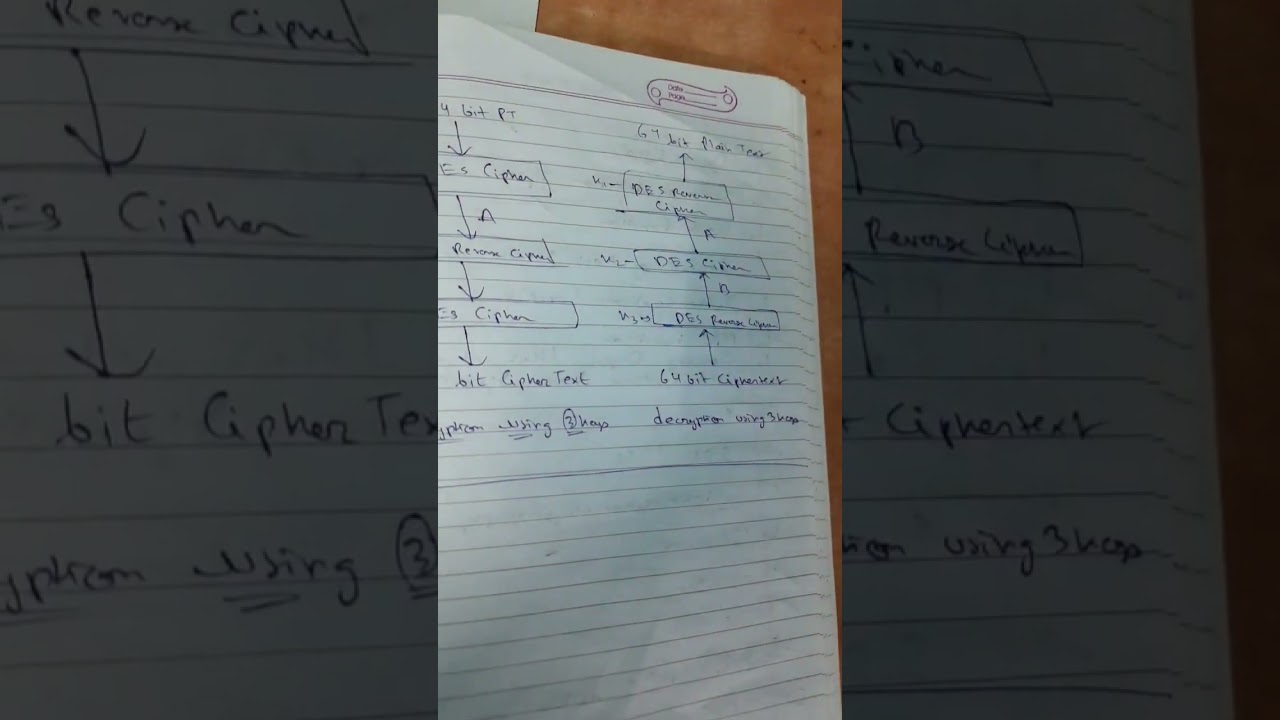 4 bit PT
Es Cipher
A
Reverse Cipher
Es Cipher
bit Cipher Text
yption using 3 keys
Date
Page
64 bit Plain Text
K1
DES Reverse
Cipher
A
K2
DES Cipher
B
K3
DES Reverse Cipher
64 bit Ciphertext
decryption using 3 keys
Reverse Cipher
Es Cipher
bit Cipher Tex
yption using 3
Cipher
B
Reverse Cipher
Ciphertext
using 3 keys